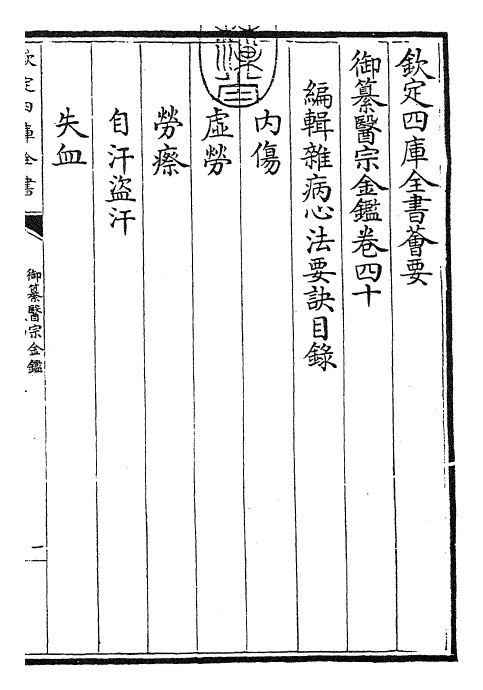 欽定四庫全書薈要
御纂醫宗金鑑卷四十
編輯雜病心法要訣目錄
內傷
虛勞
勞瘵
自汗盜汗
失血
欽定四庫全書
御纂醫宗金鑑